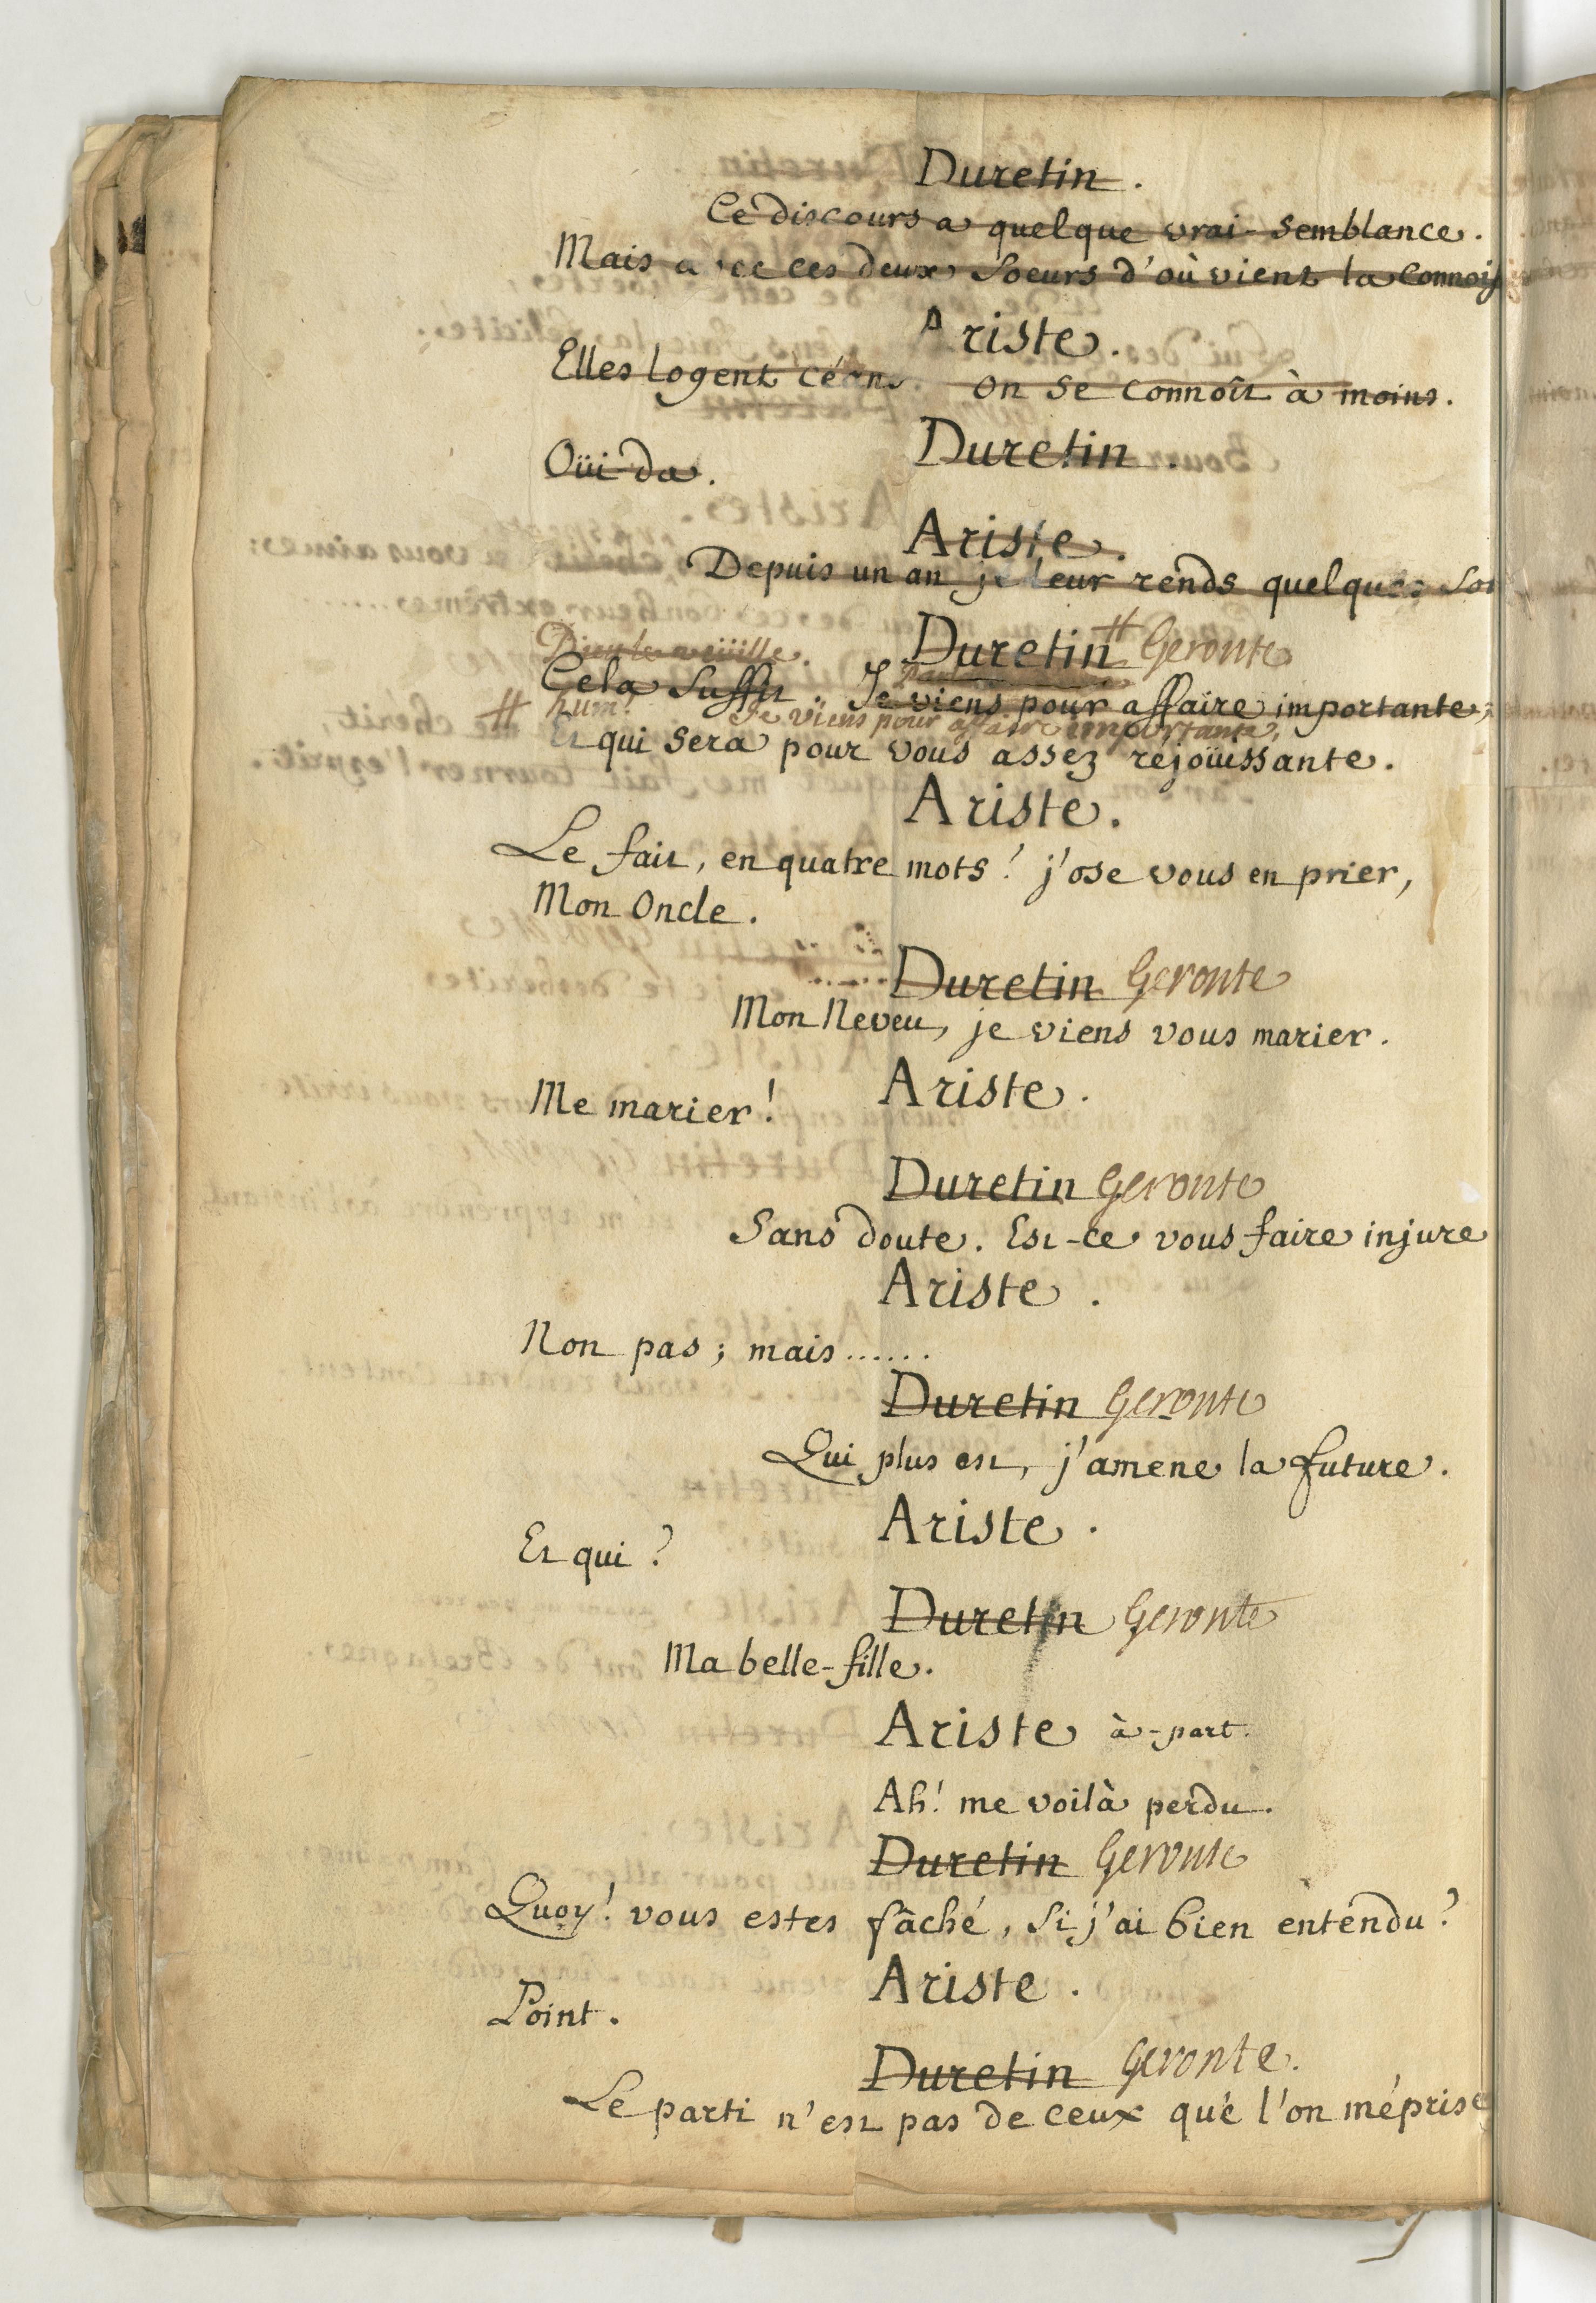 Duretin.
Ce discours a quelque vrai-semblance.
Mais avec ces deux Soeurs d'où vient la connoiss
Ariste.
Elles logent céans. On se connoît à moins.
Duretin.
Oüi-da.
Ariste.
Depuis un an je leur rends quelques Soi
Duretin # Geronte
Dieu le veüille.
Cela suffit. Je viens pour affaire importante,
# hum! Je viens pour affaire importante,
Et qui sera pour vous assez réjoüissante.
Ariste.
Le fait, en quatre mots! j'ose vous en prier,
Mon Oncle.
Duretin Geronte
Mon Neveu, je viens vous marier.
Ariste.
Me marier!
Duretin Geronte
Sans doute. Est-ce vous faire injure
Ariste.
Non pas; mais......
Duretin Geronte
Qui plus est, j'amene la future.
Ariste.
Et qui?
Duretin Geronte
Ma belle-fille.
Ariste à-part.
Ah! me voilà perdu.
Duretin Geronte
Quoy! vous estes fâché, si j'ai bien entendu?
Ariste.
Point.
Duretin Geronte.
Le parti n'est pas de ceux que l'on méprise